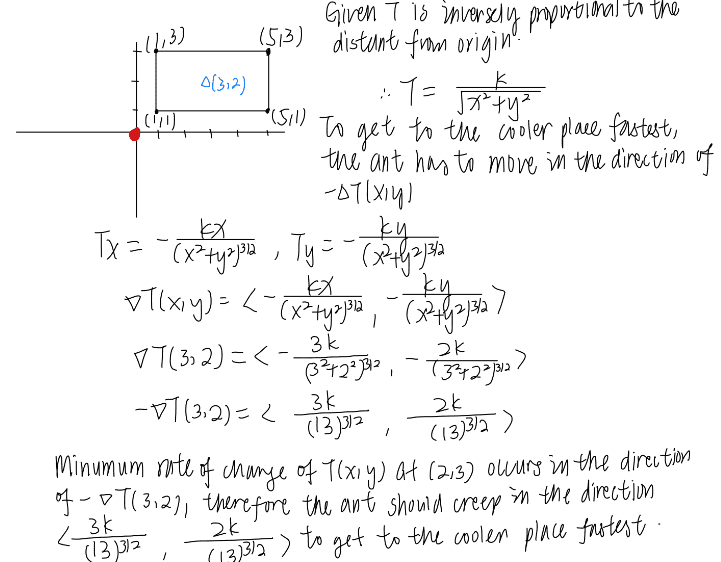 Given T is inversely proportional to the
distant from origin.
(1,3) (5,3)
Δ(3,2)
(1,1) (5,1)
∴ T = k/√(x²+y²)
To get to the cooler place fastest,
the ant has to move in the direction of
-ΔT(x,y)
Tx = - kx/(x²+y²)^3/2 , Ty = - ky/(x²+y²)^3/2
∇T(x,y) = < - kx/(x²+y²)^3/2 , - ky/(x²+y²)^3/2 >
∇T(3,2) = < - 3k/(3²+2²)^3/2 , - 2k/(3²+2²)^3/2 >
-∇T(3,2) = < 3k/(13)^3/2 , 2k/(13)^3/2 >
Minumum rate of change of T(x,y) at (2,3) occurs in the direction
of -∇T(3,2), therefore the ant should creep in the direction
< 3k/(13)^3/2 , 2k/(13)^3/2 > to get to the cooler place fastest.